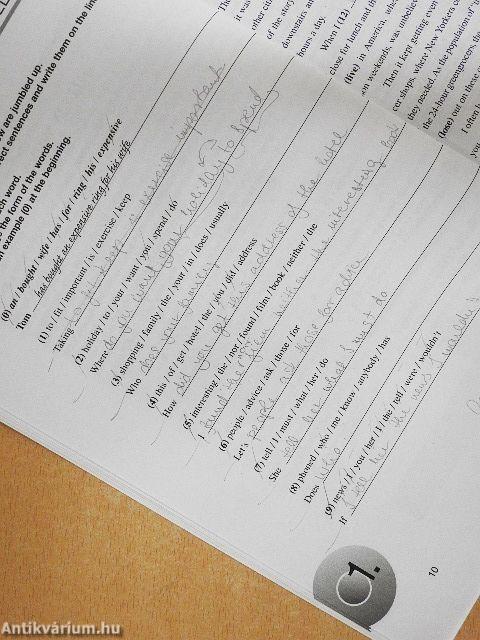 ow are jumbled up.
rect sentences and write them on the lin
ach word.
e the form of the words.
n example (0) at the beginning.
(0) an / bought / wife / has / for / ring / his / expensive
Tom has bought an expensive ring for his wife
(1) to / fit / important / is / exercise / keep
Taking to fit keep is exercise important
(2) holiday / to / your / want / you / spend / do
Where do you want your holiday to spend
(3) shopping / family / the / your / in / does / usually
Who does your family
(4) this / of / get / hotel / the / you / did / address
How did you get this address of the hotel
(5) interesting / the / nor / found / film / book / neither / the
I found
(6) people / advice / ask / those / for
Let's people ask those for advice
(7) tell / I / must / what / her / do
She tell her what I must do
(8) phoned / who / me / know / anybody / has
Does who
(9) news / I / you / her / I / the / tell / were / wouldn't
If I tell her the news I wouldn't
The
it was
other citi
of the stor
downstairs an
hours a day.
When I (12)
close for lunch and th
(live) in America, whe
on weekends, was unbeliev
Then it kept getting even
cer shops, where New Yorkers c
they needed. As the population of "u
the 24-hour greengrocers, the
(lose) out on these
I often h
you
1.
10
Antikvárium.hu